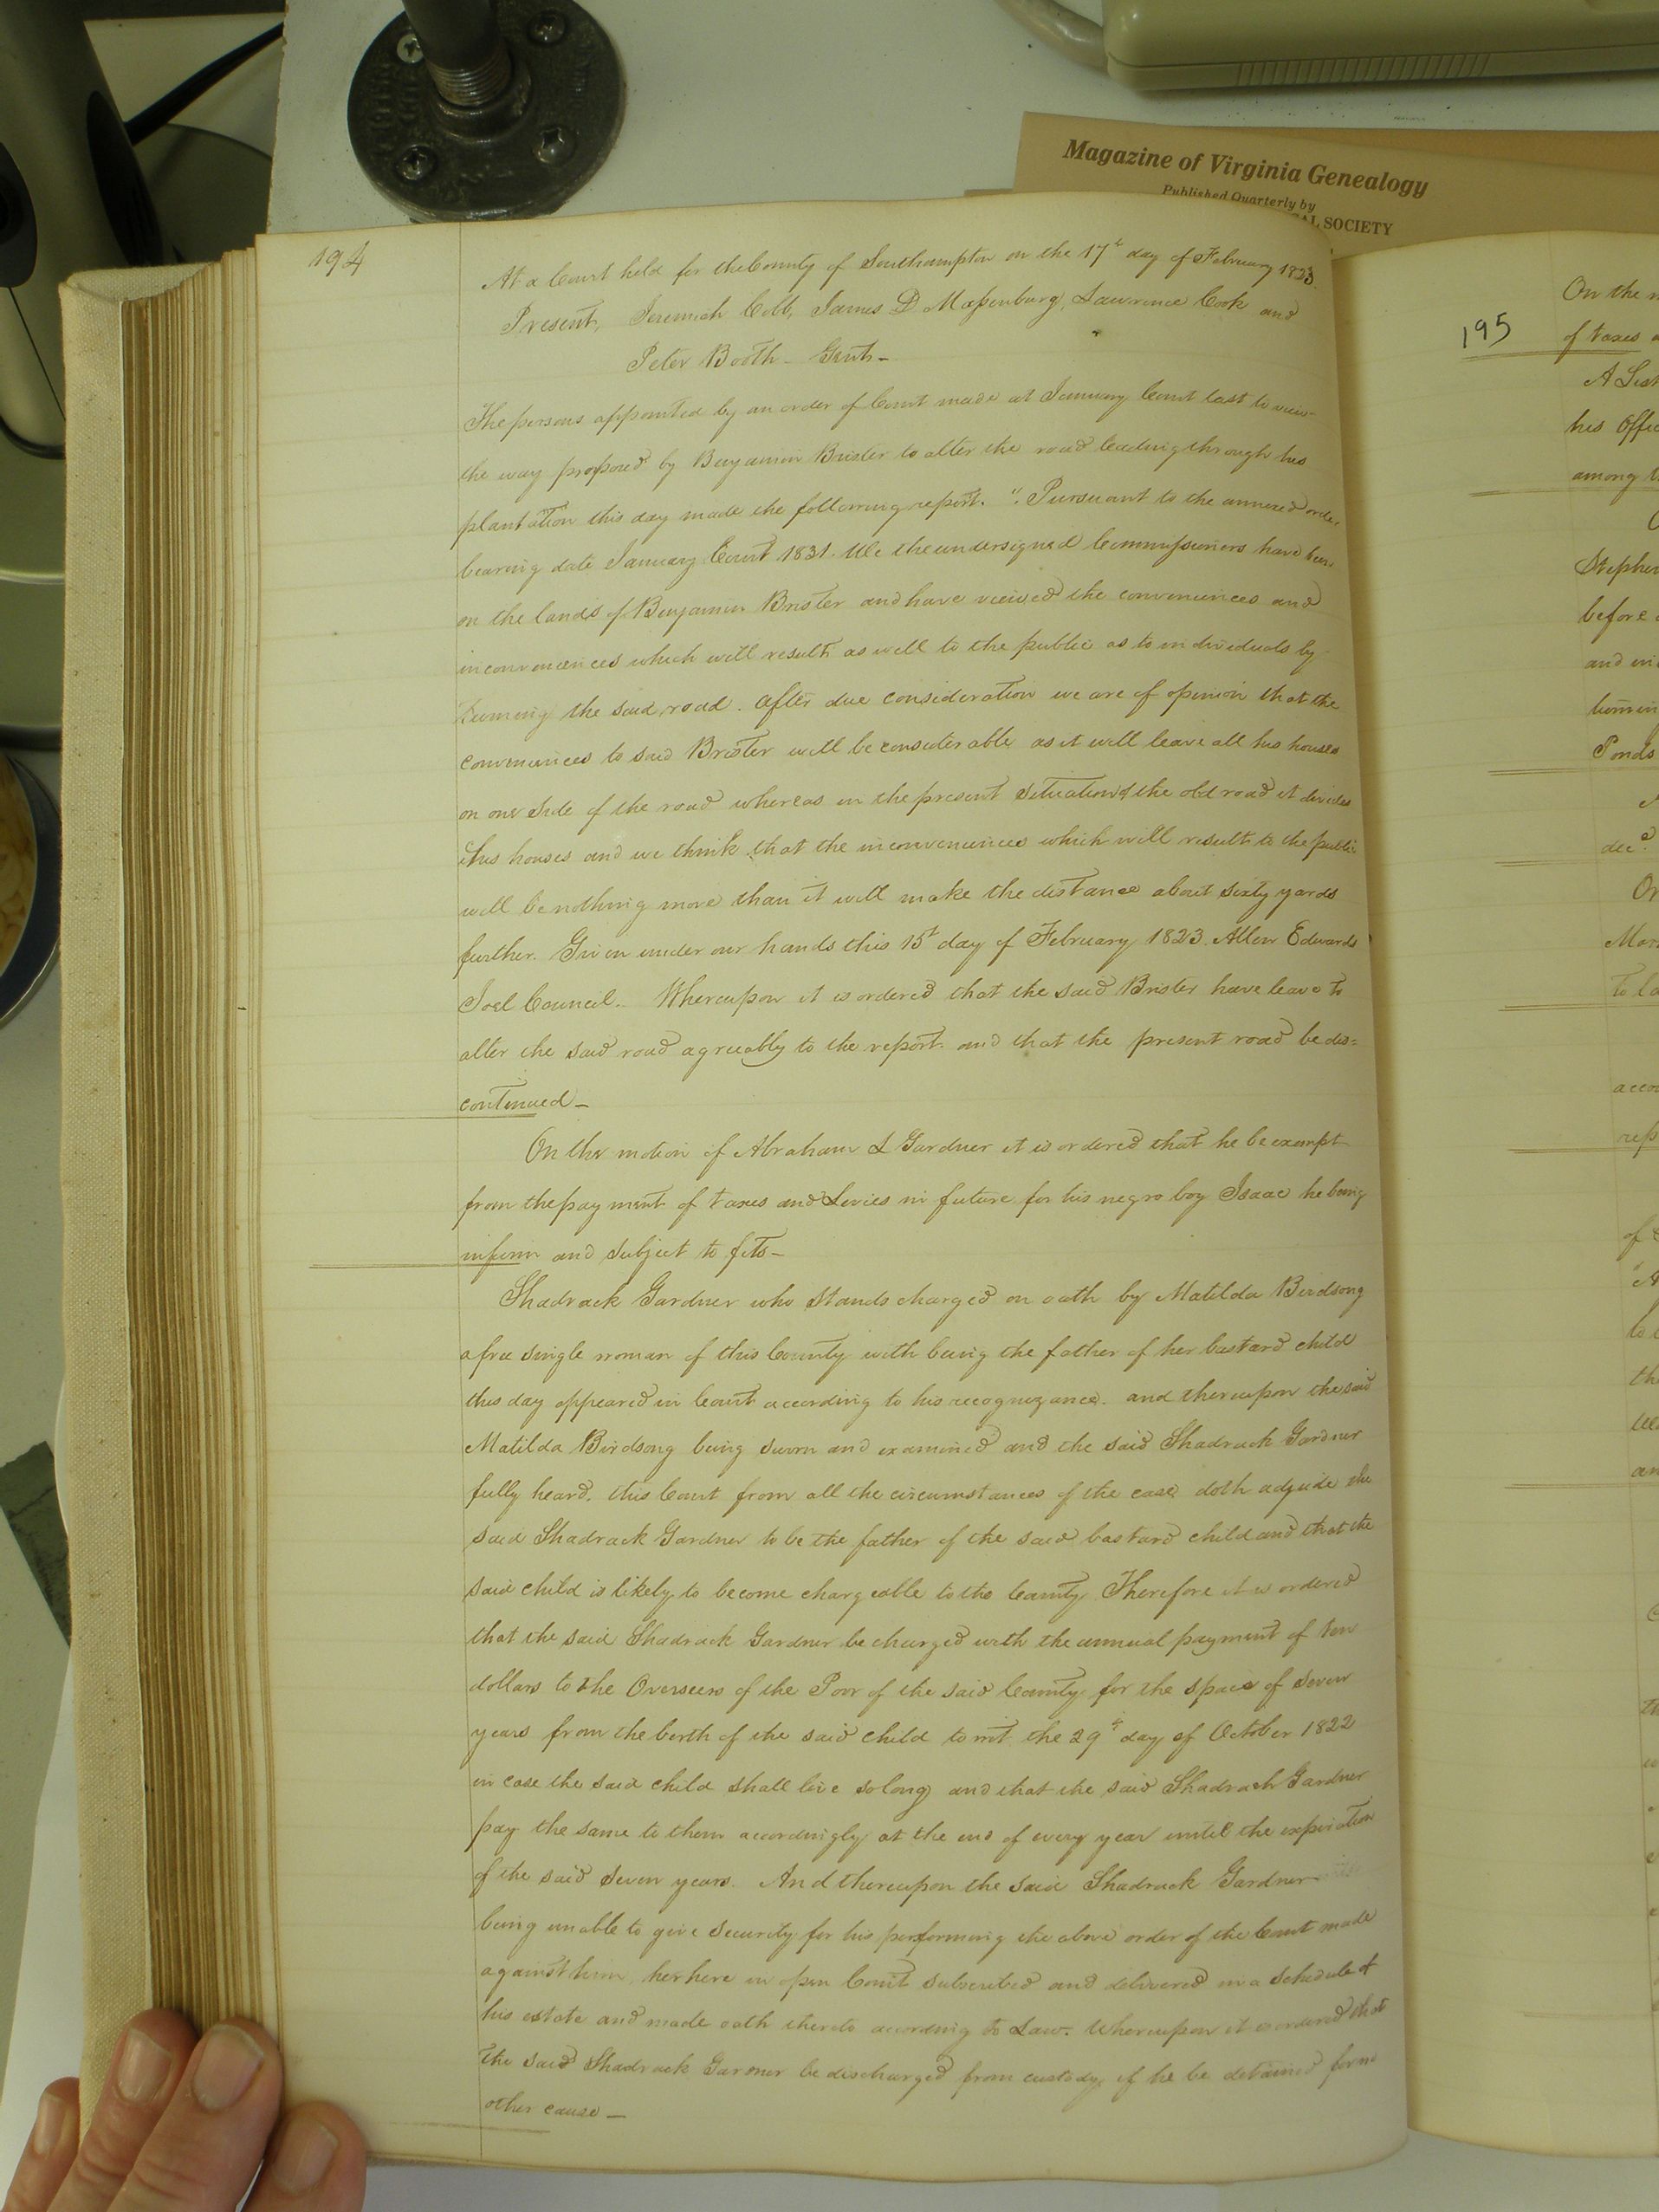 Magazine of Virginia Genealogy
Published Quarterly by
AL SOCIETY
194
At a Court held for the County of Southampton on the 17t day of February 1823.
Present, Jeremiah Cobb, James D Massenburg, Lawrence Cook and
Peter Booth - Gents -
The persons appointed by an order of Court made at January Court last to view
the way proposed by Benjamin Brister to alter the road leading through his
plantation this day made the following report. ". Pursuant to the annexed order
bearing date January Court 1831. We the undersigned Commissioners have been
on the lands of Benjamin Brister and have viewed the conveniences and
inconveniences which will result as well to the public as to individuals by
turning the said road. After due consideration we are of opinion that the
conveniences to said Brister will be considerable as it will leave all his houses
on one side of the road whereas in the present situation of the old road it divides
his houses and we think that the inconveniences which will result to the public
will be nothing more than it will make the distance about sixty yards
further. Given under our hands this 15t day of February 1823. Allen Edwards
Joel Council. Whereupon it is ordered that the said Brister have leave to
alter the said road agreeably to the report and that the present road be dis=
continued -
On the motion of Abraham L Gardner it is ordered that he be exempt
from the payment of taxes and Levies in future for his negro boy Isaac he being
infirm and subject to fits -
Shadrack Gardner who stands charged on oath by Matilda Birdsong
a free single woman of this County with being the father of her bastard child
this day appeared in Court according to his recognizance. and thereupon the said
Matilda Birdsong being sworn and examined and the said Shadrack Gardner
fully heard. this Court from all the circumstances of the case doth adjude the
said Shadrack Gardner to be the father of the said bastard child and that the
said child is likely to become chargeable to the County Therefore it is ordered
that the said Shadrack Gardner be charged with the annual payment of ten
dollars to the Overseers of the Poor of the said County for the space of seven
years from the birth of the said child to wit the 29t day of October 1822
in case the said child shall live so long and that the said Shadrach Gardner
pay the same to them accordingly at the end of every year until the expiration
of the said seven years. And thereupon the said Shadrack Gardner
being unable to give security for his performing the above order of the Court made
against him, he here in open Court subscribed and delivered in a schedule of
his estate and made oath thereto according to Law. Whereupon it is ordered that
the said Shadrack Garner be discharged from custody, if he be detained for no
other cause -
195
On the
of taxes
A List
his Offi
among
Stephen
before
and
Ponds
dec.d
On
To
acco
rep
of
to
the
an